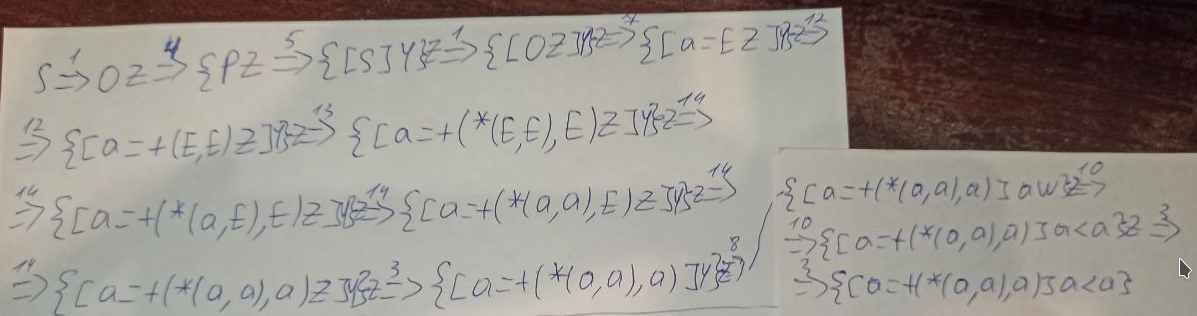 S ⇒¹ OZ ⇒⁴ {PZ ⇒⁵ {[S]Y}Z ⇒¹ {[OZ]Y}Z ⇒⁷ {[a=EZ]Y}Z ⇒¹²
⇒¹² {[a=+(E,E)Z]Y}Z ⇒¹³ {[a=+(*(E,E),E)Z]Y}Z ⇒¹⁴
⇒¹⁴ {[a=+(*(a,E),E)Z]Y}Z ⇒¹⁴ {[a=+(*(a,a),E)Z]Y}Z ⇒¹⁴
⇒¹⁴ {[a=+(*(a,a),a)Z]Y}Z ⇒³ {[a=+(*(a,a),a)]Y}Z ⇒⁸
{[a=+(*(a,a),a)]aW}Z ⇒¹⁰
⇒¹⁰ {[a=+(*(a,a),a)]a<a}Z ⇒³
⇒³ {[a=+(*(a,a),a)]a<a}